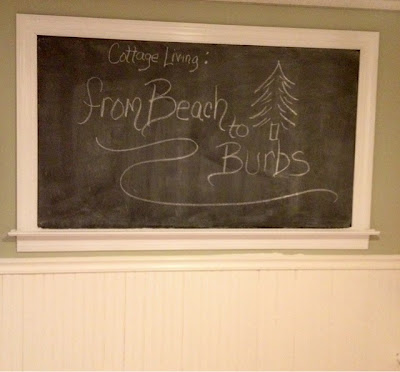 Cottage Living:
from Beach
to
Burbs